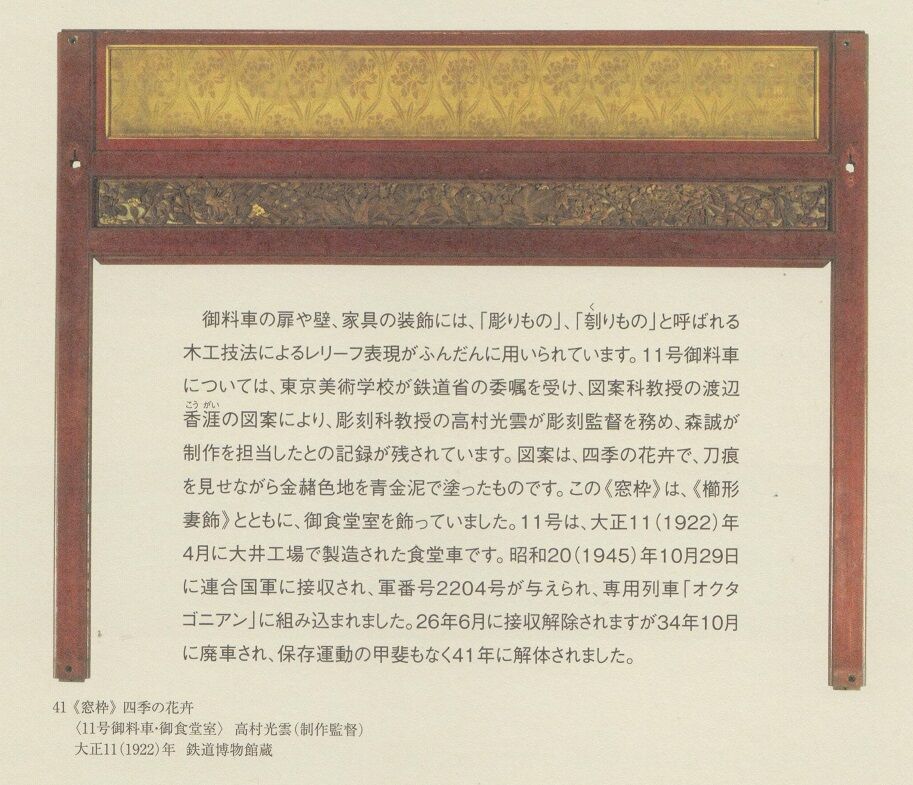 御料車の扉や壁、家具の装飾には、「彫りもの」、「刳りもの」と呼ばれる
木工技法によるレリーフ表現がふんだんに用いられています。11号御料車
については、東京美術学校が鉄道省の委嘱を受け、図案科教授の渡辺
香涯の図案により、彫刻科教授の高村光雲が彫刻監督を務め、森誠が
制作を担当したとの記録が残されています。図案は、四季の花卉で、刀痕
を見せながら金赭色地を青金泥で塗ったものです。この《窓枠》は、《櫛形
妻飾》とともに、御食堂室を飾っていました。11号は、大正11（1922）年
4月に大井工場で製造された食堂車です。昭和20（1945）年10月29日
に連合国軍に接収され、軍番号2204号が与えられ、専用列車「オクタ
ゴニアン」に組み込まれました。26年6月に接収解除されますが34年10月
に廃車され、保存運動の甲斐もなく41年に解体されました。
41《窓枠》四季の花卉
〈11号御料車・御食堂室〉 高村光雲（制作監督）
大正11（1922）年 鉄道博物館蔵